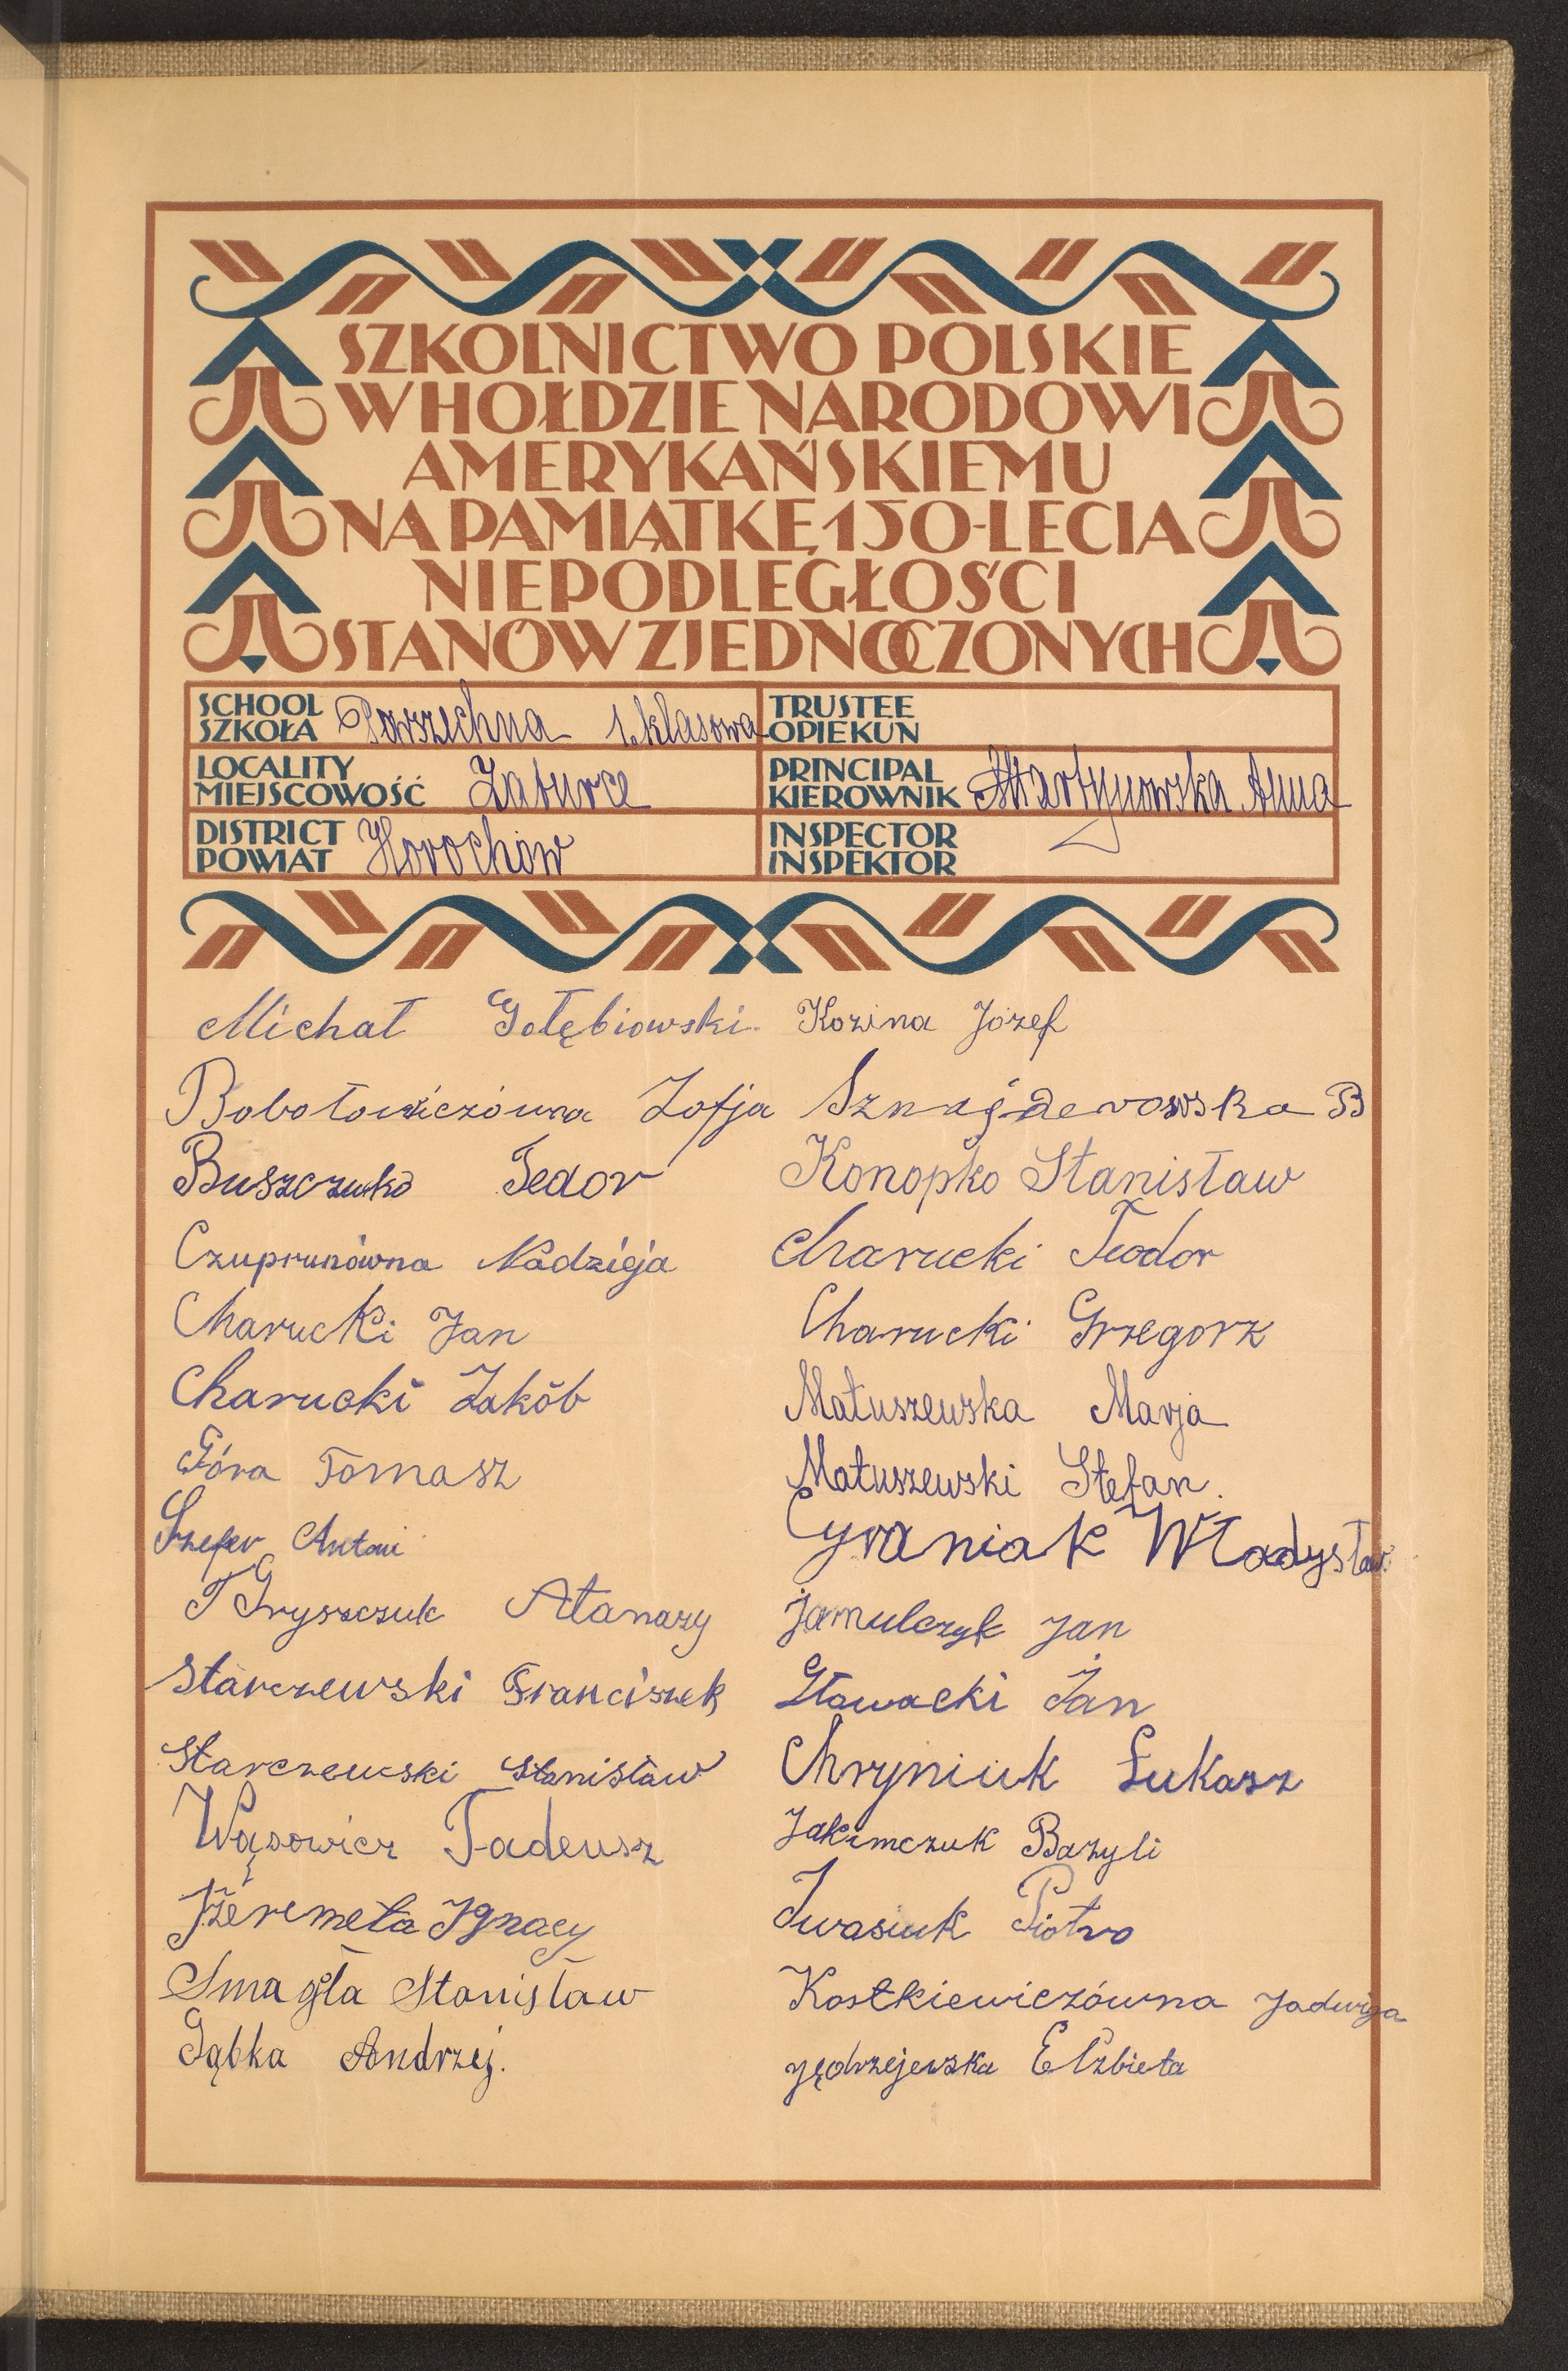 SZKOLNICTWO POLSKIE
W HOŁDZIE NARODOWI
AMERYKAŃSKIEMU
NA PAMIĄTKĘ 150-LECIA
NIEPODLEGŁOŚCI
STANÓW ZJEDNOCZONYCH
SCHOOL
SZKOŁA Powszechna 1. klasowa
TRUSTEE
OPIEKUN
LOCALITY
MIEJSCOWOŚĆ Zaturce
PRINCIPAL
KIEROWNIK Martynowska Anna
DISTRICT
POWIAT Horochów
INSPECTOR
INSPEKTOR
Michał Gołębiowski
Bobołowiczówna Zofja
Buszczuko Fedor
Czuprunówna Nadzieja
Charucki Jan
Charucki Jakób
Góra Tomasz
Szefer Antoni
Gryszczuk Atanazy
Starczewski Franciszek
Starczewski Stanisław
Wąsowicz Tadeusz
Jeremeta Ignacy
Smagła Stanisław
Gąbka Andrzej.
Kozina Józef
Sznajderowska B
Konopko Stanisław
Charucki Teodor
Charucki Grzegorz
Matuszewska Marja
Matuszewski Stefan.
Cyraniak Władysław
Jamulczyk Jan
Głowacki Jan
Chryniuk Łukasz
Jakimczuk Bazyli
Iwasiuk Piotro
Kostkiewiczówna Jadwiga
Jędrzejewska Elżbieta